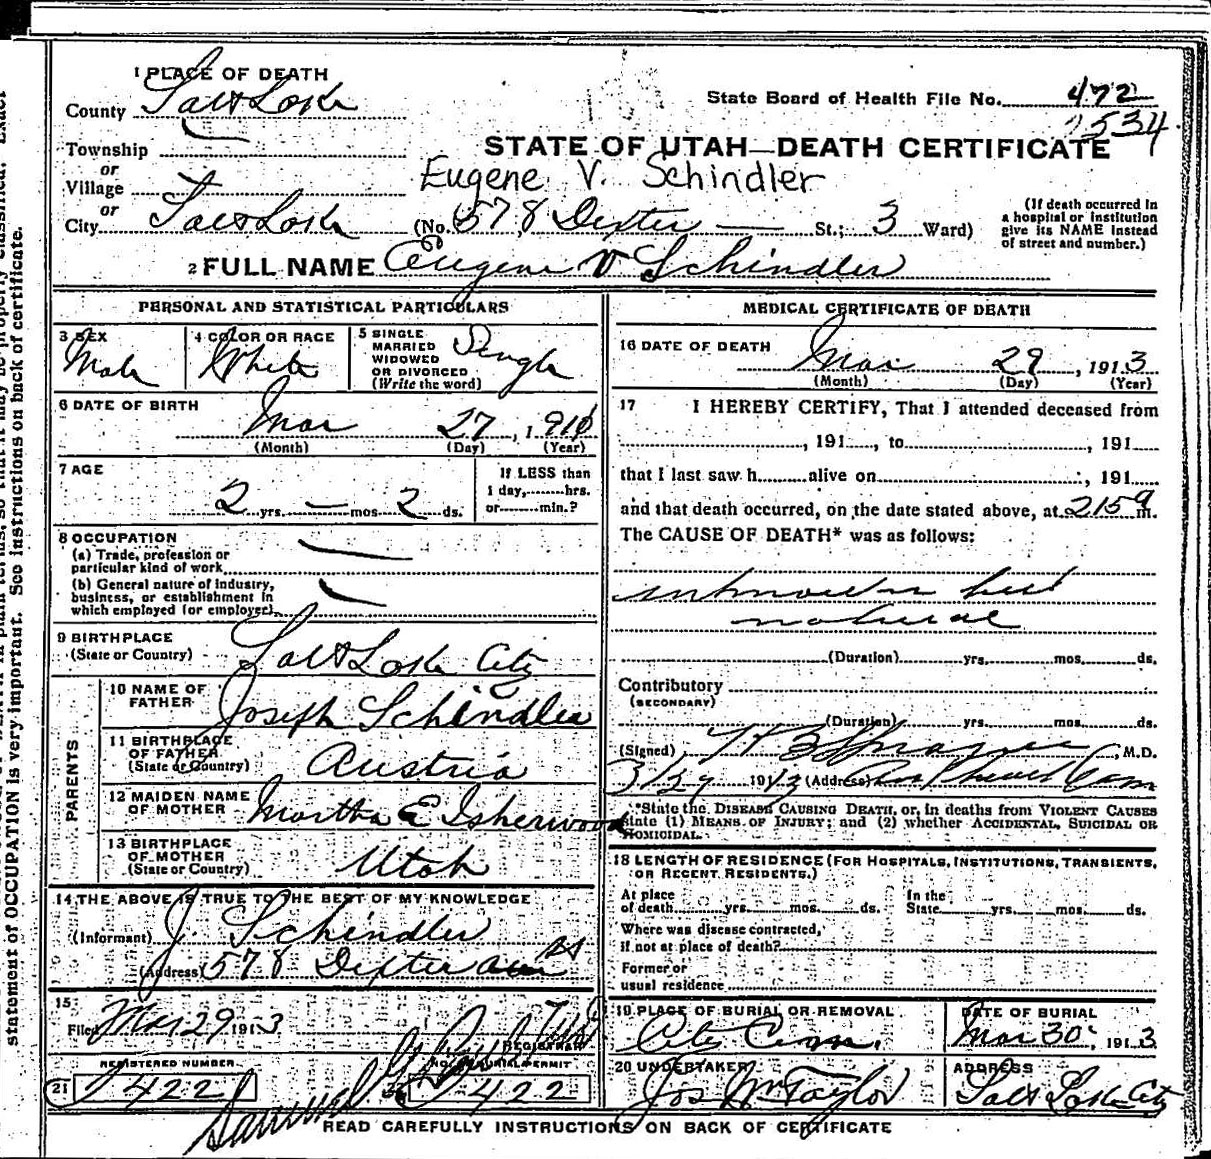 1 PLACE OF DEATH
County Salt Lake
State Board of Health File No. 472
534
Township
or
Village
or
City Salt Lake
STATE OF UTAH—DEATH CERTIFICATE
Eugene V. Schindler
(No. 578 Dexter St.; 3 Ward)
(If death occurred in
a hospital or institution
give its NAME instead
of street and number.)
2 FULL NAME Eugene V Schindler
PERSONAL AND STATISTICAL PARTICULARS
3 SEX
Male
4 COLOR OR RACE
White
5 SINGLE
MARRIED
WIDOWED
OR DIVORCED
(Write the word)
Single
6 DATE OF BIRTH
Mar 27, 191
(Month) (Day) (Year)
7 AGE
2 yrs. — mos. 2 ds.
If LESS than
1 day,........hrs.
or........min.?
8 OCCUPATION
(a) Trade, profession or
particular kind of work
(b) General nature of industry,
business, or establishment in
which employed (or employer)
9 BIRTHPLACE
(State or Country)
Salt Lake City
PARENTS
10 NAME OF
FATHER
Joseph Schindler
11 BIRTHPLACE
OF FATHER
(State or Country)
Austria
12 MAIDEN NAME
OF MOTHER
Martha E Isherwood
13 BIRTHPLACE
OF MOTHER
(State or Country)
Utah
14 THE ABOVE IS TRUE TO THE BEST OF MY KNOWLEDGE
(Informant) J. Schindler
(Address) 578 Dexter St
15
Filed Mar 29 1913
REGISTRAR
REGISTERED NUMBER
21 422
PERMIT
422
MEDICAL CERTIFICATE OF DEATH
16 DATE OF DEATH
Mar 29, 1913
(Month) (Day) (Year)
17 I HEREBY CERTIFY, That I attended deceased from
, 191 , to , 191
that I last saw h alive on , 191
and that death occurred, on the date stated above, at 215 a m.
The CAUSE OF DEATH* was as follows:
unknown but
natural
(Duration) yrs. mos. ds.
Contributory
(SECONDARY)
(Duration) yrs. mos. ds.
(Signed) , M.D.
3/29 1913 (Address)
*State the DISEASE CAUSING DEATH, or, in deaths from VIOLENT CAUSES
state (1) MEANS OF INJURY; and (2) whether ACCIDENTAL, SUICIDAL OR
HOMICIDAL.
18 LENGTH OF RESIDENCE (FOR HOSPITALS, INSTITUTIONS, TRANSIENTS,
OR RECENT RESIDENTS.)
At place
of death yrs. mos. ds.
In the
State yrs. mos. ds.
Where was disease contracted,
if not at place of death?
Former or
usual residence
19 PLACE OF BURIAL OR REMOVAL
City Cem.
DATE OF BURIAL
Mar 30, 1913
20 UNDERTAKER
Jos Wm Taylor
ADDRESS
Salt Lake City
READ CAREFULLY INSTRUCTIONS ON BACK OF CERTIFICATE
statement of OCCUPATION is very important. See instructions on back of certificate.